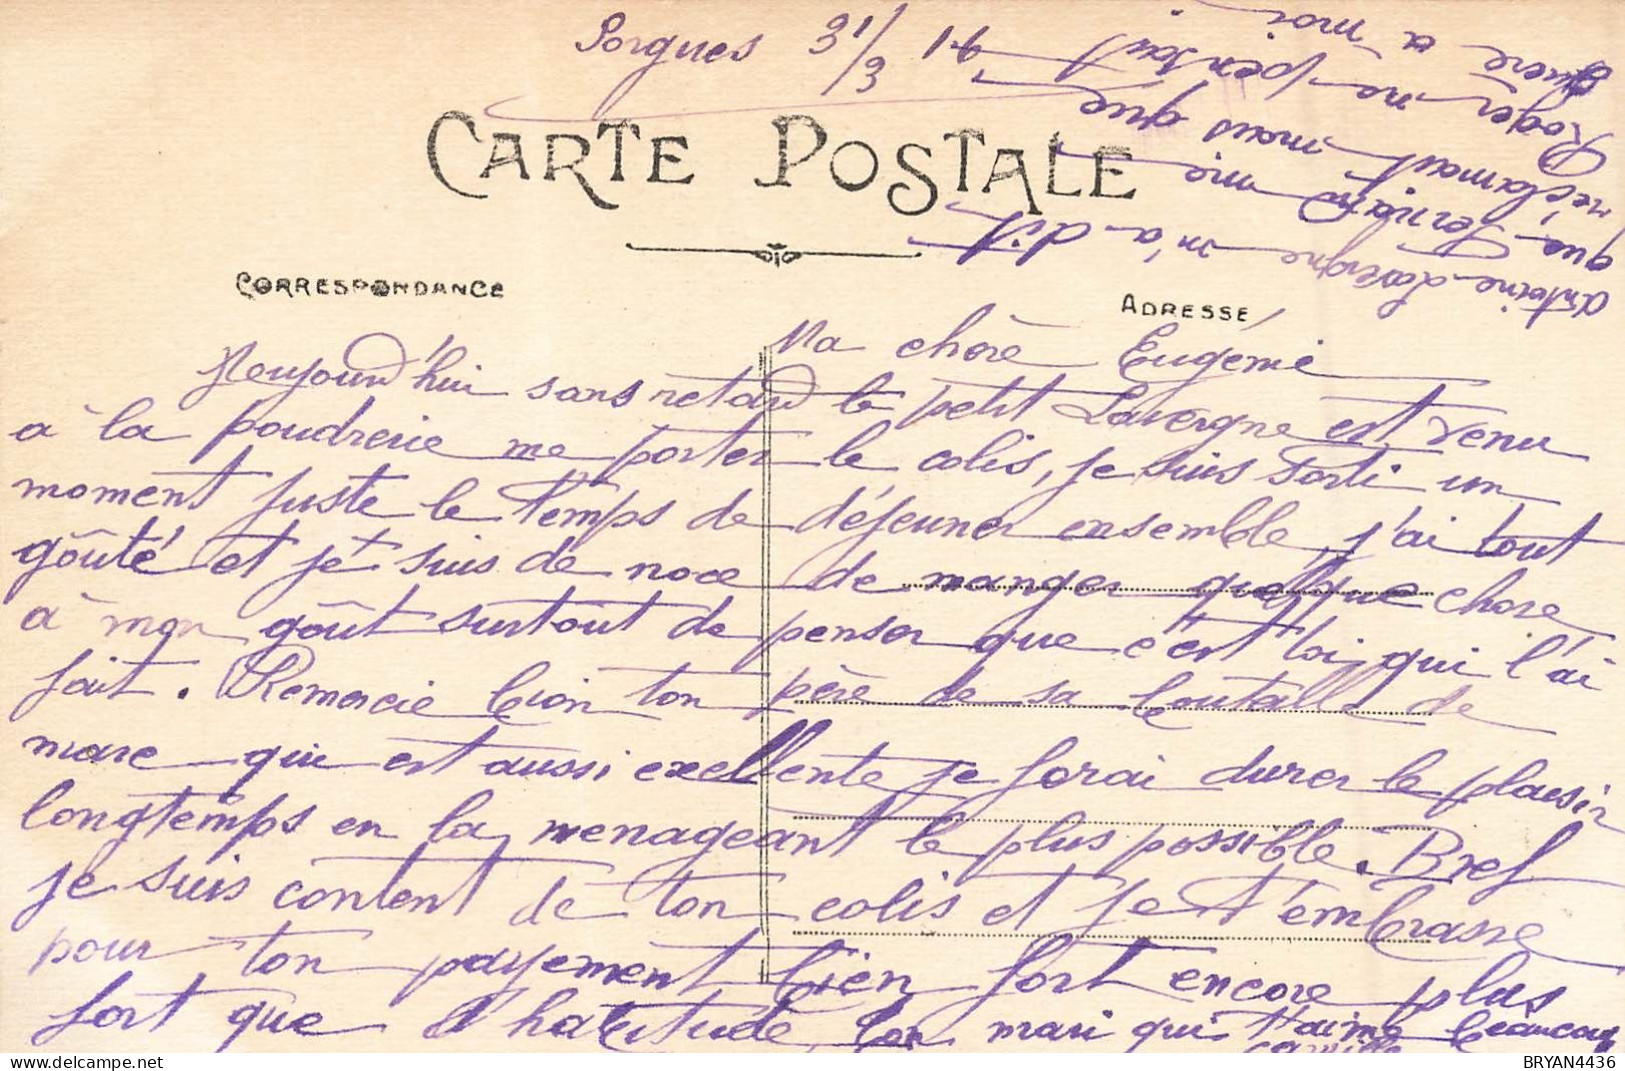 Sorgues 31/3 17
CARTE POSTALE
CORRESPONDANCE
ADRESSE
Ma chère Eugénie
Aujourd'hui sans retard le petit Lavergne est venu
à la poudrerie me porter le colis, je suis sorti un
moment juste le temps de déjeuner ensemble, j'ai tout
gôuté et je suis de noce de manger quelque chose
à mon goût surtout de penser que c'est toi qui l'ai
fait. Remercie bien ton père de sa bouteille de
marc qui est aussi exellente je ferai durer le plaisir
longtemps en la menageant le plus possible. Bref
je suis content de ton colis et je t'embrasse
pour ton payement bien fort encore plus
fort que d'habitude, ton mari qui t'aime beaucoup
Camille
Antoine Lavergne m'a dit
que Fernand me
réclamait mais que
Roger ne pensait
guere a moi
BRYAN4436